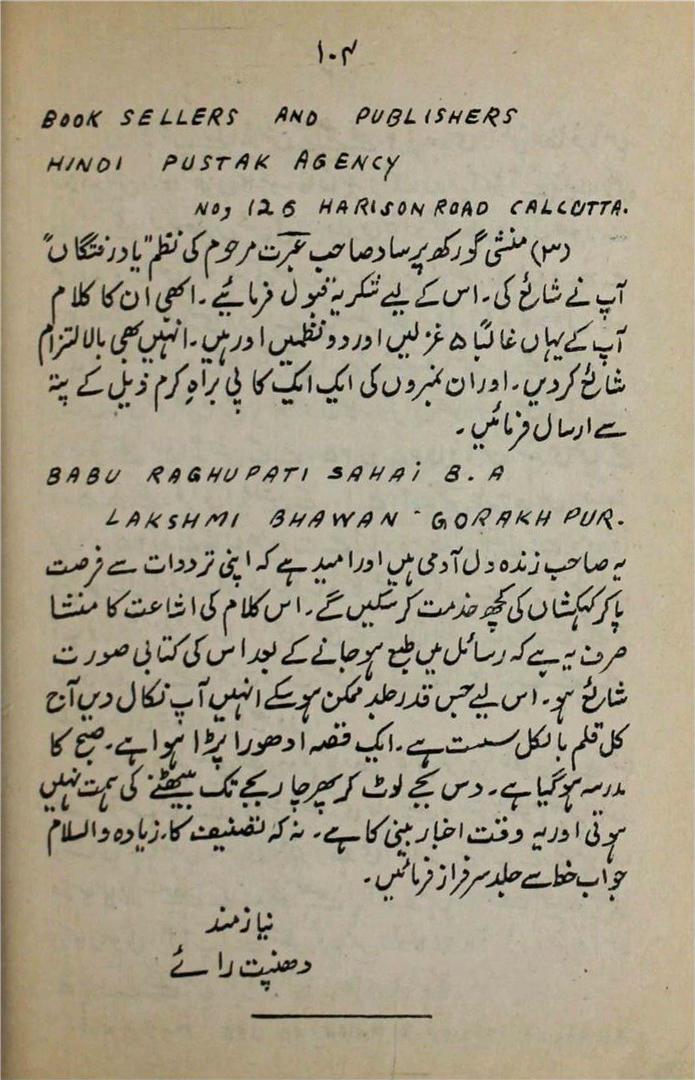 ۱۰۴
BOOK SELLERS AND PUBLISHERS
HINDI PUSTAK AGENCY
NO, 126 HARISON ROAD CALCUTTA.
(۳) منشی گورکھ پرساد صاحب عبرت مرحوم کی نظم "یاد رفتگاں"
آپ نے شائع کی۔ اس کے لیے شکریہ قبول فرمائیے۔ ابھی ان کا کلام
آپ کے یہاں غالباً ۵ غزلیں اور دو نظمیں اور ہیں۔ انہیں بھی بالالتزام
شائع کر دیں۔ اور ان نمبروں کی ایک ایک کاپی براہِ کرم ذیل کے پتہ
سے ارسال فرمائیں۔
BABU RAGHUPATI SAHAI B. A
LAKSHMI BHAWAN - GORAKHPUR.
یہ صاحب زندہ دل آدمی ہیں اور امید ہے کہ اپنی ترددات سے فرصت
پا کر کہکشاں کی کچھ خدمت کر سکیں گے۔ اس کلام کی اشاعت کا منشا
صرف یہ ہے کہ رسائل میں طبع ہو جانے کے بعد اس کی کتابی صورت
شائع ہو۔ اس لیے جس قدر جلد ممکن ہو سکے انہیں آپ نکال دیں آج
کل قلم بالکل سست ہے۔ ایک قصہ ادھورا پڑا ہوا ہے۔ صبح کا
مدرسہ ہو گیا ہے۔ دس بجے لوٹ کر پھر چار بجے تک بیٹھنے کی ہمت نہیں
ہوتی اور یہ وقت اخبار بینی کا ہے۔ نہ کہ تصنیف کا۔ زیادہ والسلام
جواب خط سے جلد سرفراز فرمائیں۔
نیازمند
دھنپت رائے